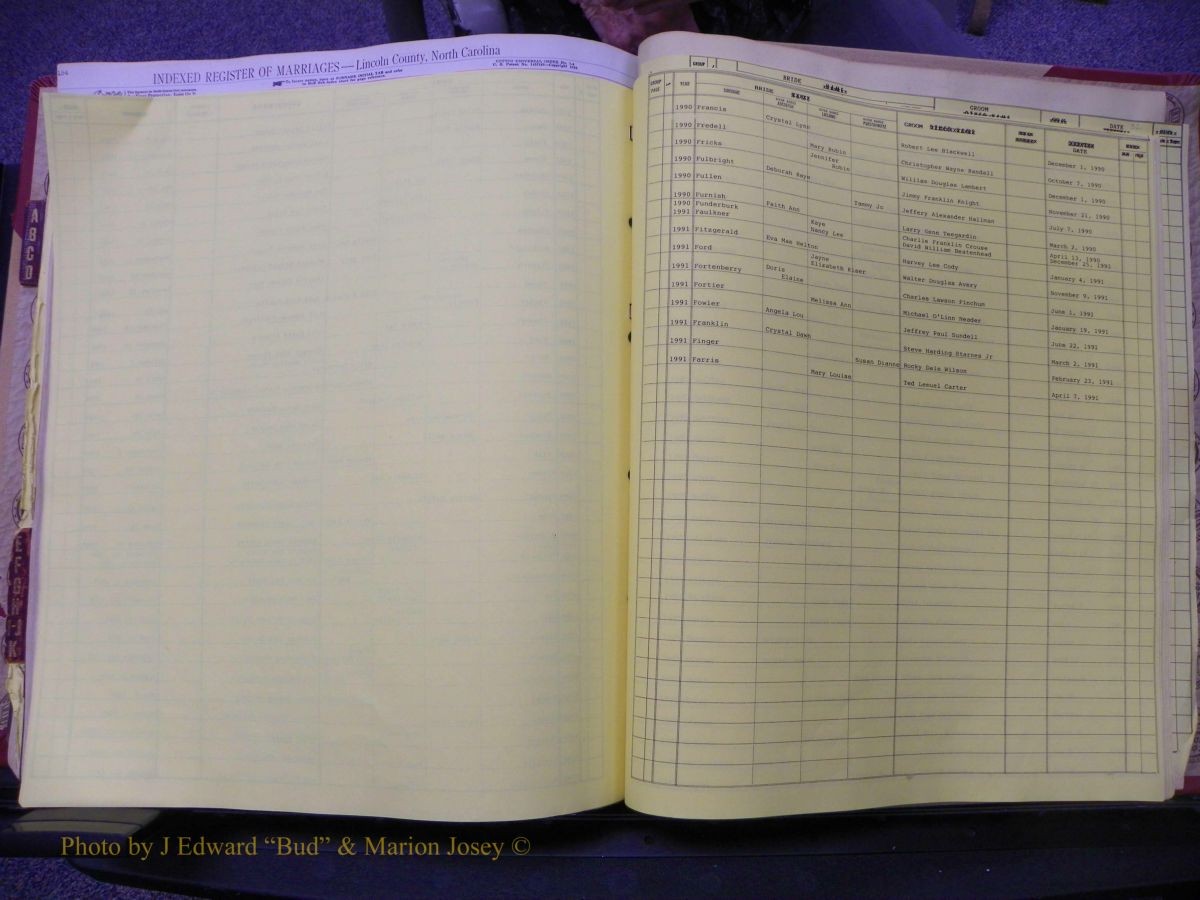 184
INDEXED REGISTER OF MARRIAGES—Lincoln County, North Carolina
GROUP
BRIDE
GROOM
GROUP PAGE YEAR SURNAME BRIDE GROOM DATE
1990 Francis Crystal Lynn Robert Lee Blackwell December 1, 1990
1990 Fredell Mary Robin Christopher Wayne Randall October 7, 1990
1990 Fricks Jennifer Robin William Douglas Lambert December 1, 1990
1990 Fulbright Deborah Kaye Jimmy Franklin Knight November 21, 1990
1990 Fullen Tammy Jo Jeffery Alexander Hallman July 7, 1990
1990 Furnish Faith Ann Larry Gene Teegardin March 2, 1990
1990 Funderburk Kaye Charlie Franklin Crouse April 13, 1990
1991 Faulkner Nancy Lee David William Beatenhead December 25, 1991
1991 Fitzgerald Eva Mae Helton Harvey Lee Cody January 4, 1991
1991 Ford Jayne Elizabeth Kiser Walter Douglas Avery November 9, 1991
1991 Fortenberry Doris Elaine Charles Lawson Finchum June 1, 1991
1991 Fortier Melissa Ann Michael O'Linn Reader January 19, 1991
1991 Fowler Angela Lou Jeffrey Paul Sundell June 22, 1991
1991 Franklin Crystal Dawn Steve Harding Starnes Jr March 2, 1991
1991 Finger Susan Dianne Rocky Dale Wilson February 23, 1991
1991 Farris Mary Louise Ted Lemuel Carter April 7, 1991
A
B
C
D
E
F
G
H
I
J
K
Photo by J Edward “Bud” & Marion Josey ©